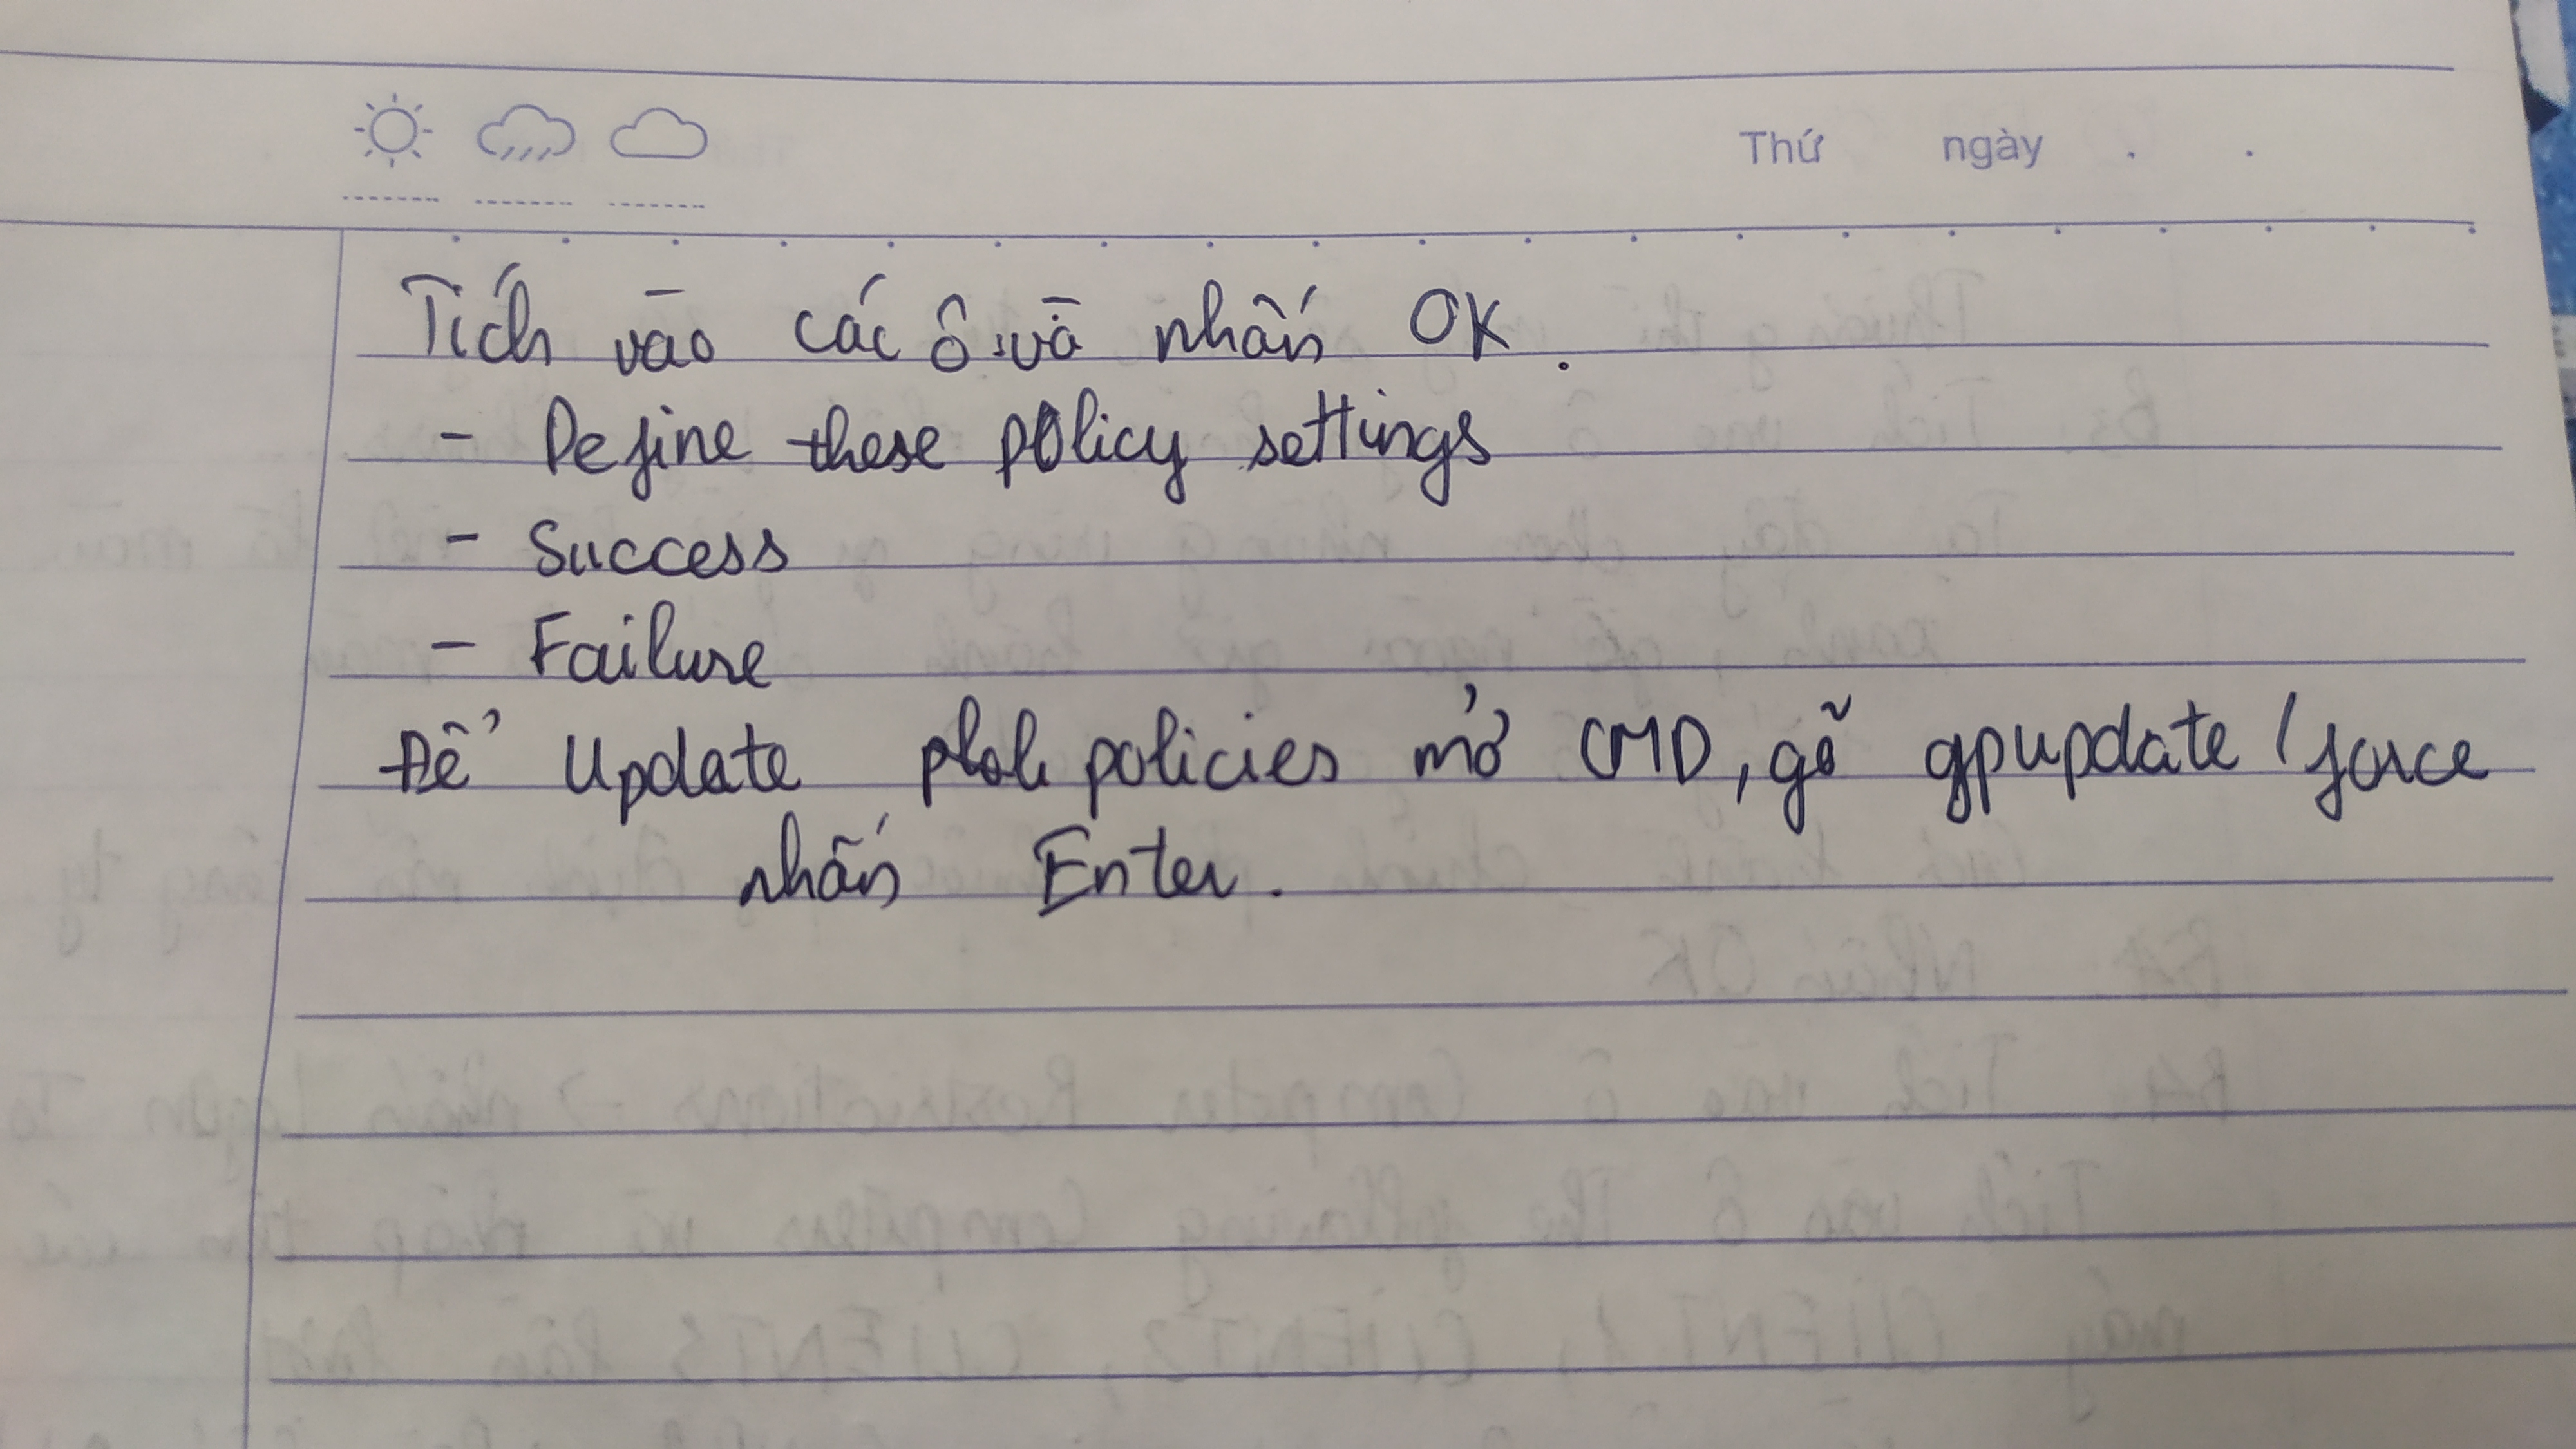 Thứ ngày . .
Tích vào các ô và nhấn OK.
- Define these policy settings
- Success
- Failure
Để Update policies mở CMD, gõ gpupdate /force
nhấn Enter.